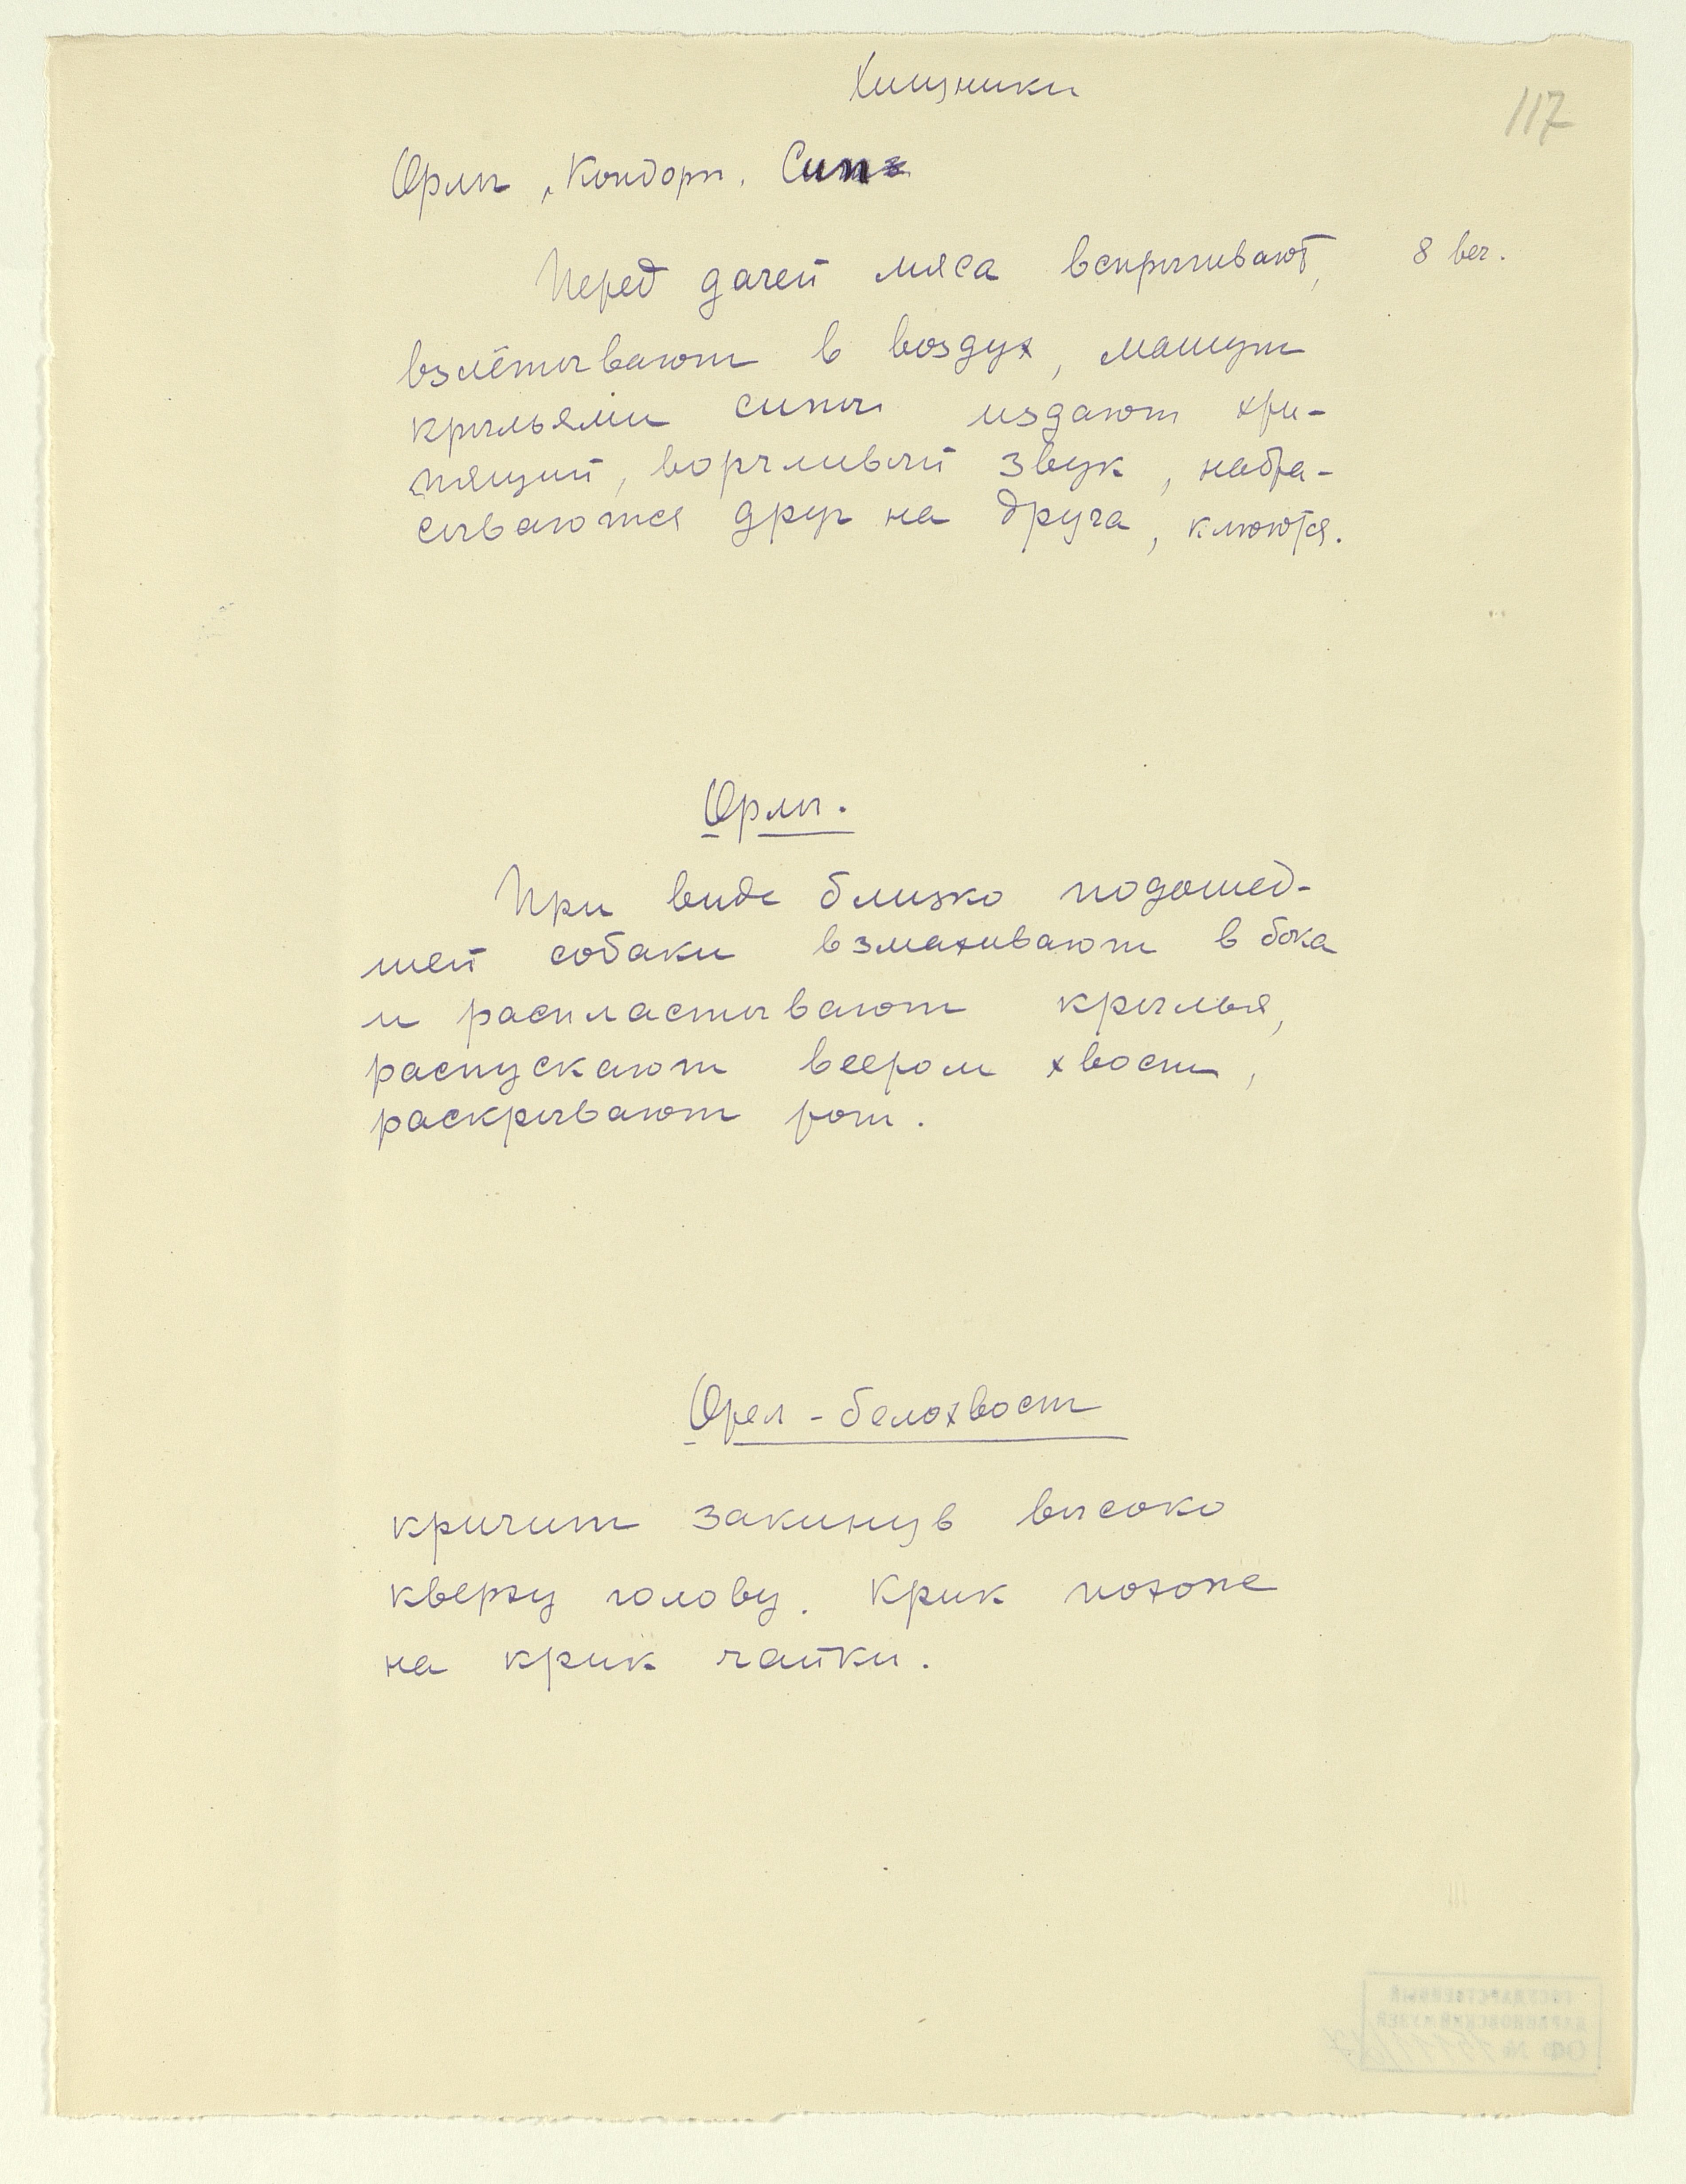 Хищники
117
Орлы, Кондоры, Сип
Перед дачей мяса вспрыгивают, 8 веч.
взлётывают в воздух, машут
крыльями сипы издают хри-
пящий, ворчливый звук, набра-
сываются друг на друга, клюются.
Орлы.
При виде близко подошед-
шей собаки взмахивают в бока
и распластывают крылья,
распускают веером хвост,
раскрывают рот.
Орел - белохвост
кричит закинув высоко
кверху голову. Крик похоже
на крик чайки.
ГОСУДАРСТВЕННЫЙ
ДАРВИНОВСКИЙ МУЗЕЙ
ОФ №